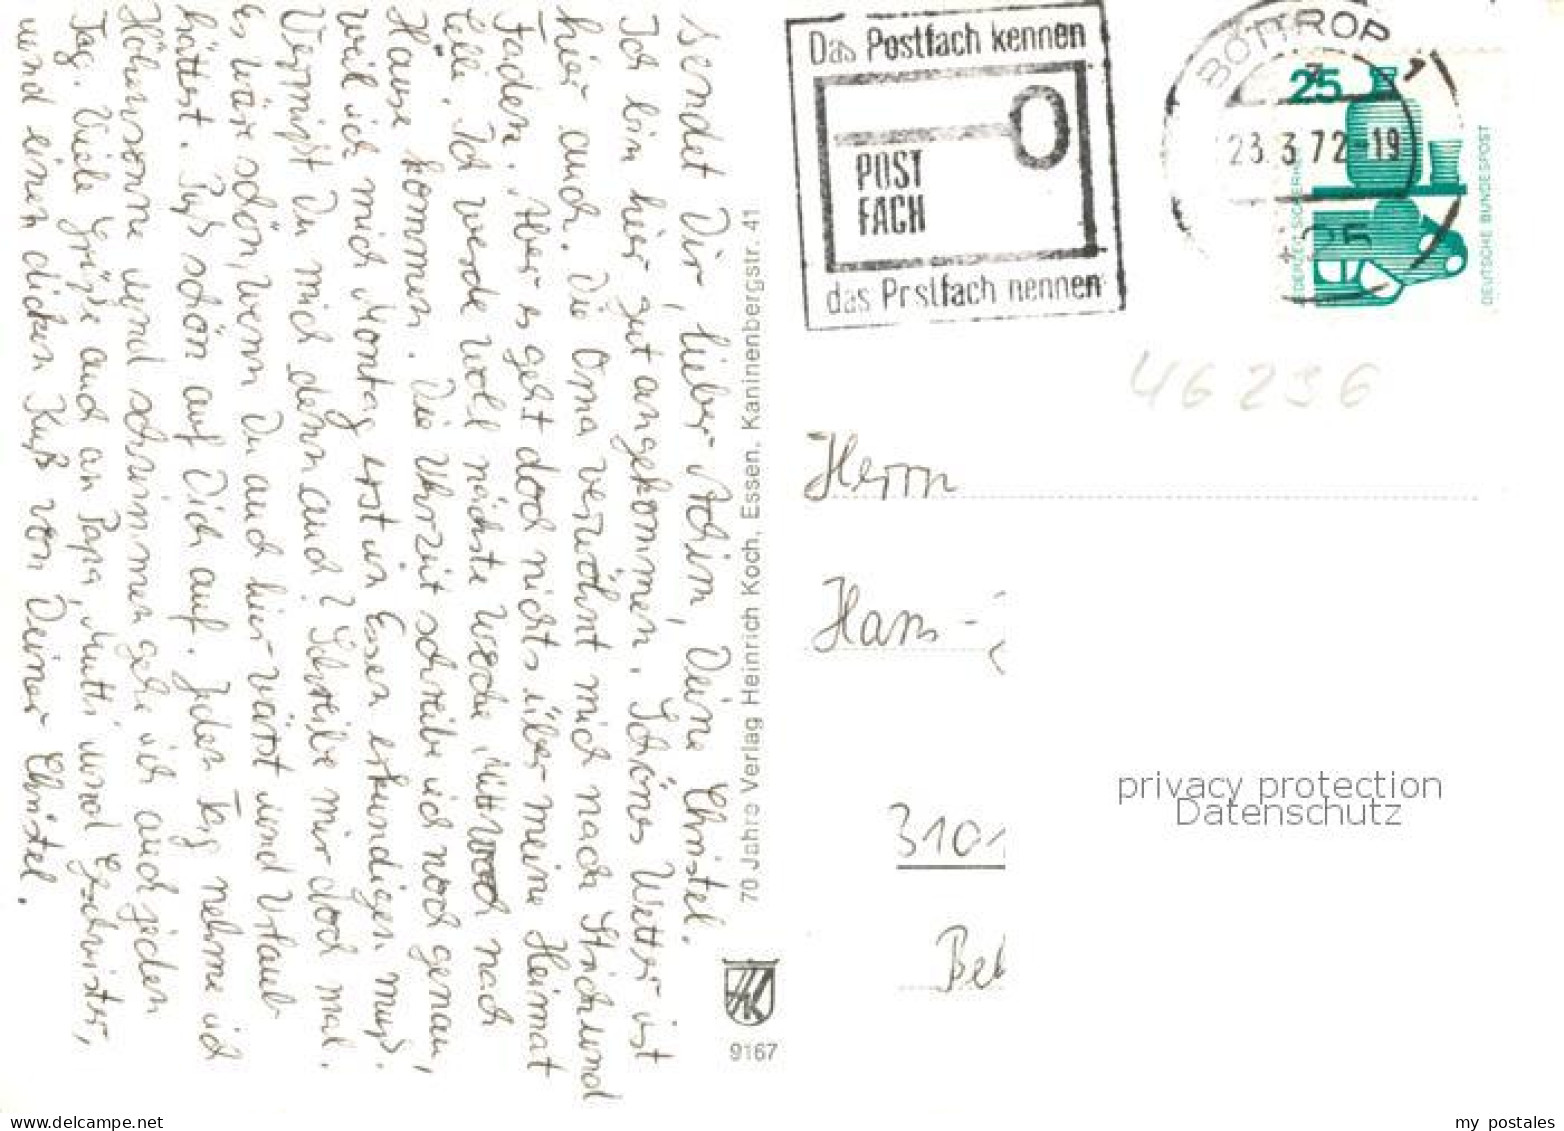 sendet Dir, lieber Achim, Deine Christel.
Ich bin hier gut angekommen. Schönes Wetter ist
hier auch. Die Oma verwöhnt mich nach Strich und
Faden. Aber es geht doch nichts über meine Heimat
Celle. Ich werde wohl nächste Woche Mittwoch nach
Hause kommen. Die Uhrzeit schreibe ich noch genau,
weil ich mich Montag erst in Essen erkundigen muß.
Vermißt Du mich denn auch? Schreibe mir doch mal.
Es wäre schön, wenn Du auch hier wärst und Urlaub
hättest. Paß schön auf Dich auf. Jeden Tag nehme ich
Höhensonne und schwimmen gehe ich auch jeden
Tag. Viele Grüße auch an Papa, Mutti und Geschwister,
und einen dicken Kuß von Deiner Christel.
70 Jahre Verlag Heinrich Koch, Essen, Kaninenbergstr. 41
HK
9167
Das Postfach kennen
POST
FACH
das Postfach nennen
BOTTROP
1
23.3.72-19
25
DEUTSCHE BUNDESPOST
46236
Herrn
Hans-
3101
privacy protection
Datenschutz
www.delcampe.net
my_postales